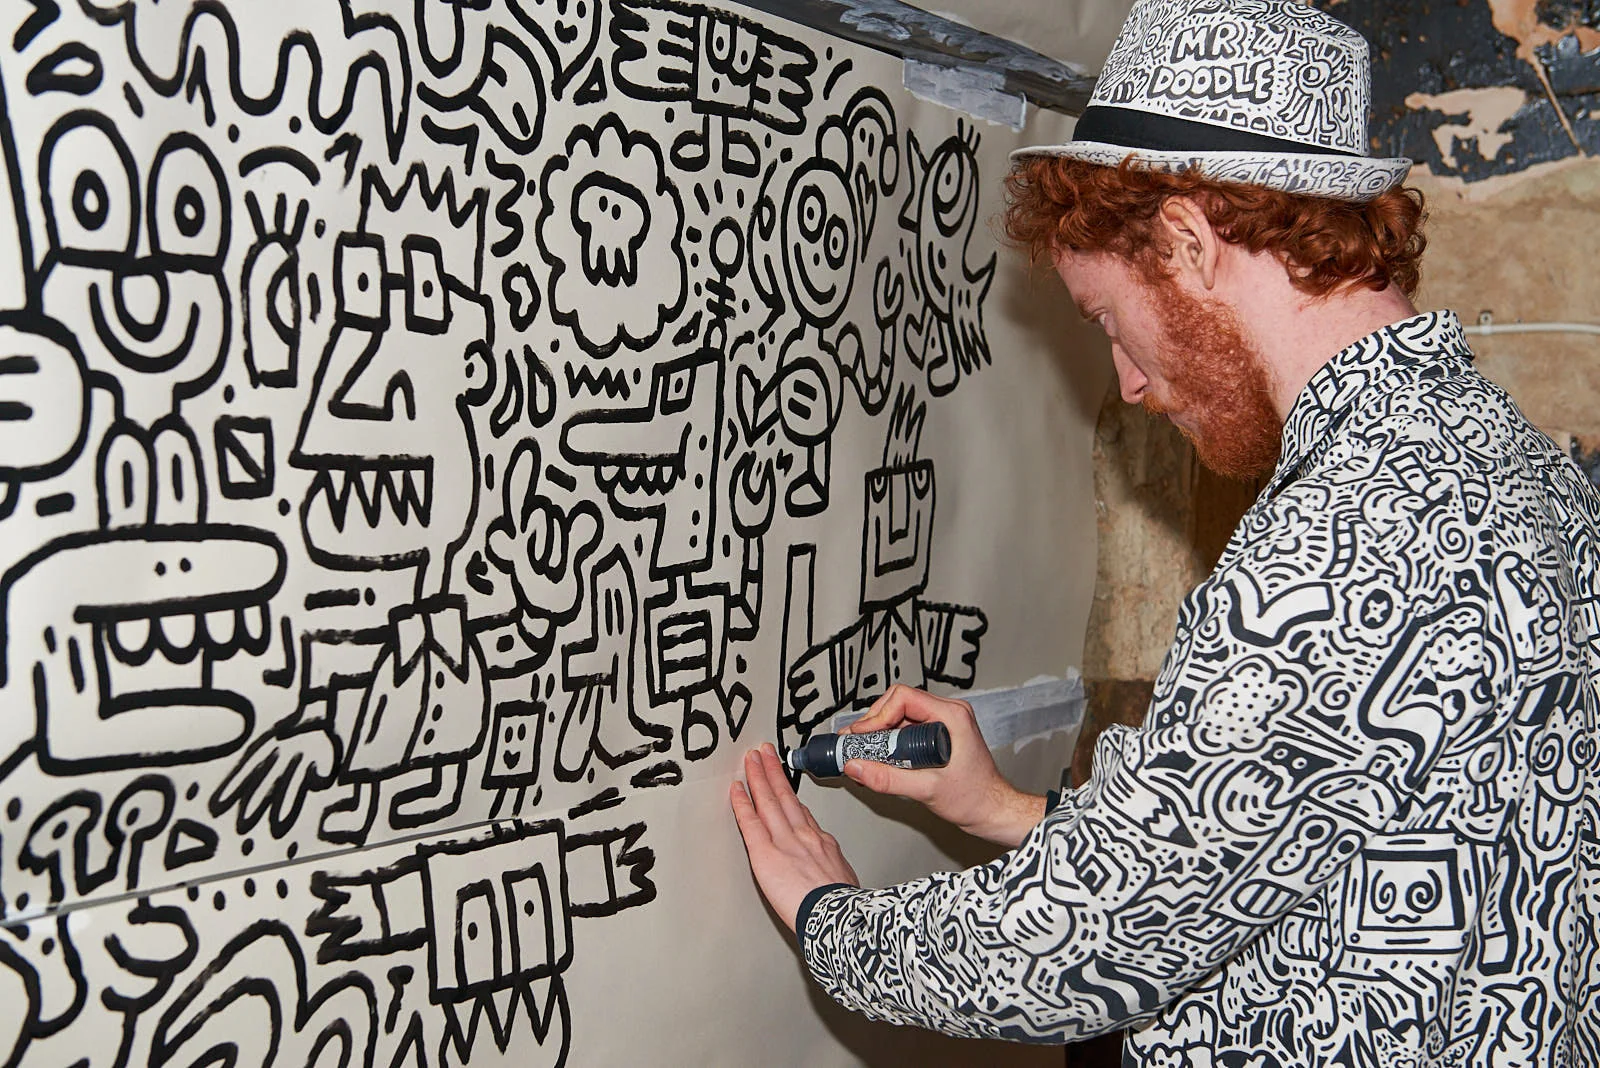 MR
DOODLE